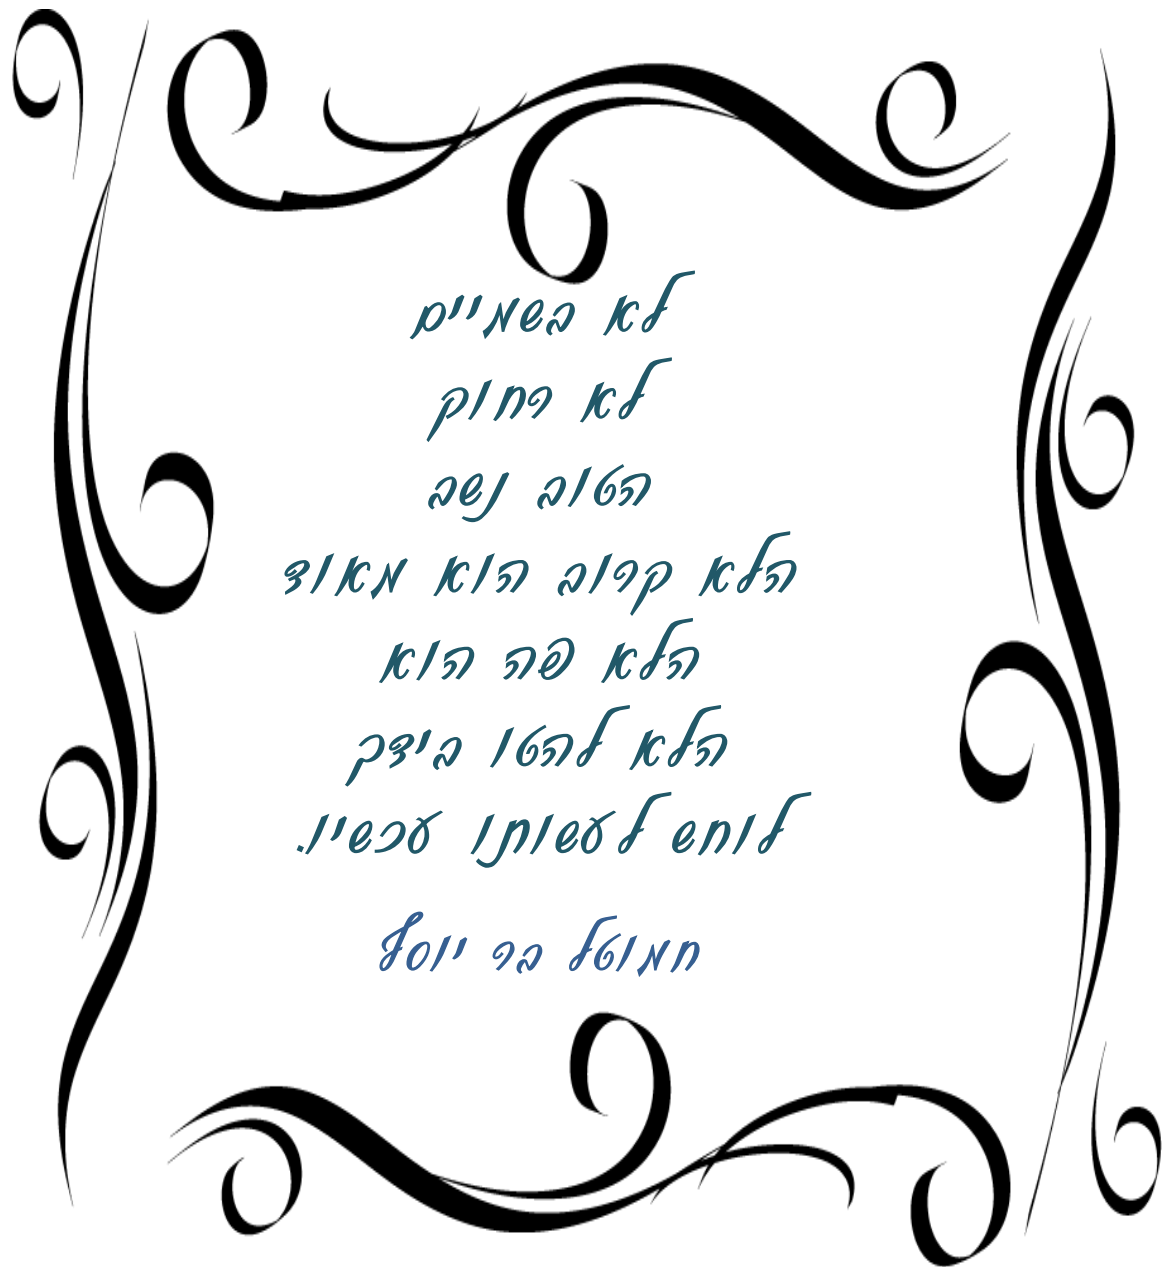 לא בשמיים
לא רחוק
הטוב נשב
הלא קרוב הוא מאוד
הלא פה הוא
הלא להטו בידך
לוחש לעשותו עכשיו.
חמוטל בר יוסף